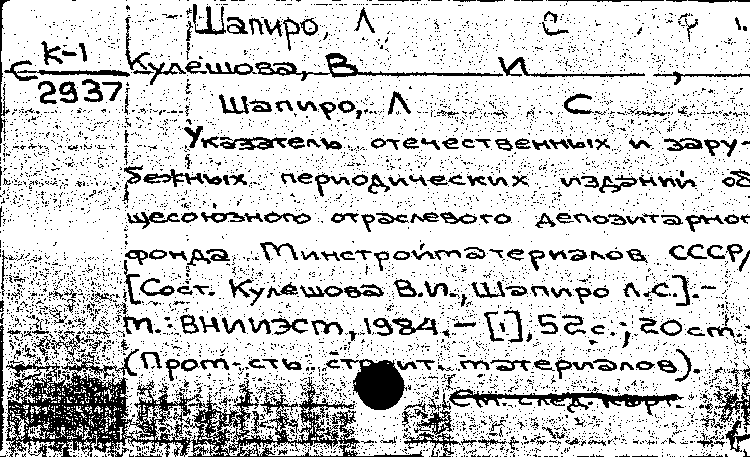 Шапиро, Л С
К-1
Кулешова, В И ,
С 2937
Шапиро, Л С
Указатель отечественных и зару-
бежных периодических изданий об
щесоюзного отраслевого депозитарног
фонда Минстройматериалов СССР/
[Сост. Кулешова В.И., Шапиро Л.С.].-
М.: ВНИИЭСМ, 1984.- [1], 52 с.; 20 см.
(Пром-сть строит. материалов).
См. след. карт.